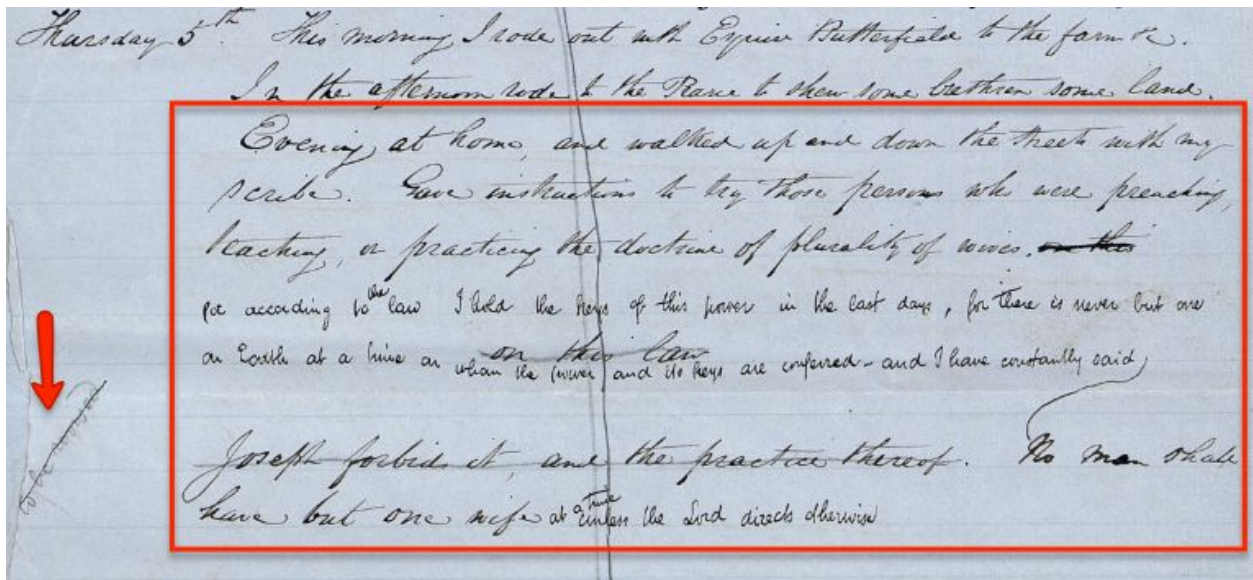 Thursday 5th. This morning I rode out with Esquire Butterfield to the farm &c.
In the afternoon rode to the Prarie to shew some brethren some land.
Evening at home, and walked up and down the streets with my
scribe. Gave instructions to try those persons who were preaching,
teaching, or practicing the doctrine of plurality of wives. on this
for according to the law I hold the keys of this power in the last days, for there is never but one
on Earth at a time on whom the power and its keys are conferred - and I have constantly said
on this law
Joseph forbids it, and the practice thereof. No man shall
have but one wife at a time unless the Lord directs otherwise
to be